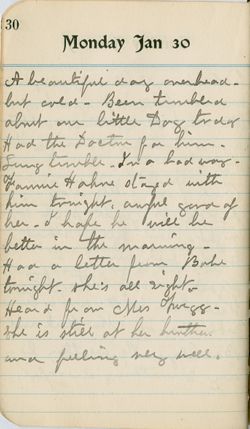 30
Monday Jan 30
A beautiful day overhead.
but cold. Been troubled
about our little Dog to day
Had the Doctor for him.
Lung trouble. In a bad way.
Fannie Hahne stayed with
him tonight. awful good of
her. I hope he will be
better in the morning.
Had a letter from Babe
tonight. she's all right.
Heard from Mrs Twigg.
she is still at her brother
and feeling very well.